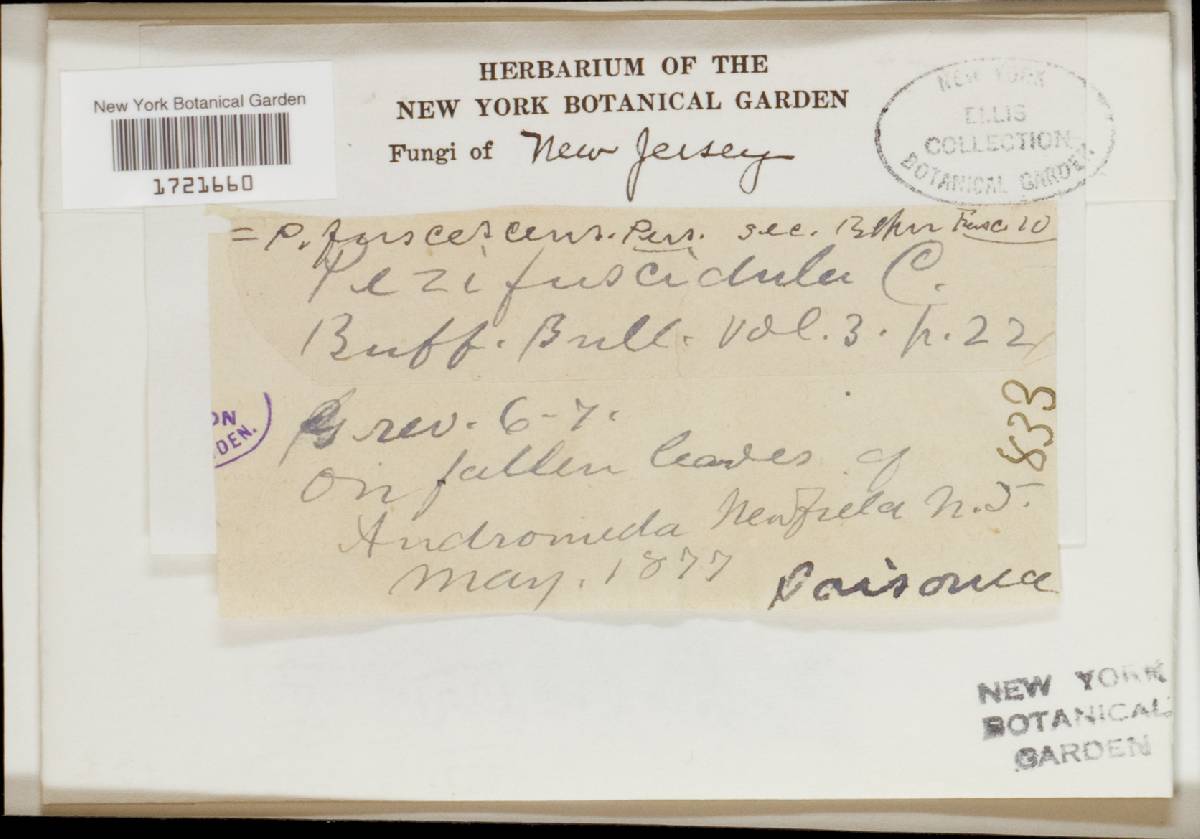 HERBARIUM OF THE
NEW YORK BOTANICAL GARDEN
Fungi of New Jersey
New York Botanical Garden
1721660
NEW YORK
ELLIS
COLLECTION
BOTANICAL GARDEN.
= P. fuscescens. Pers. sec.
Pezi fuscidula C.
Buff. Bull. Vol. 3. p. 22
Grev. 6-7.
on fallen leaves of
Andromeda Newfield N.J.
May. 1877
833
ON
DEN.
NEW YORK
BOTANICAL
GARDEN